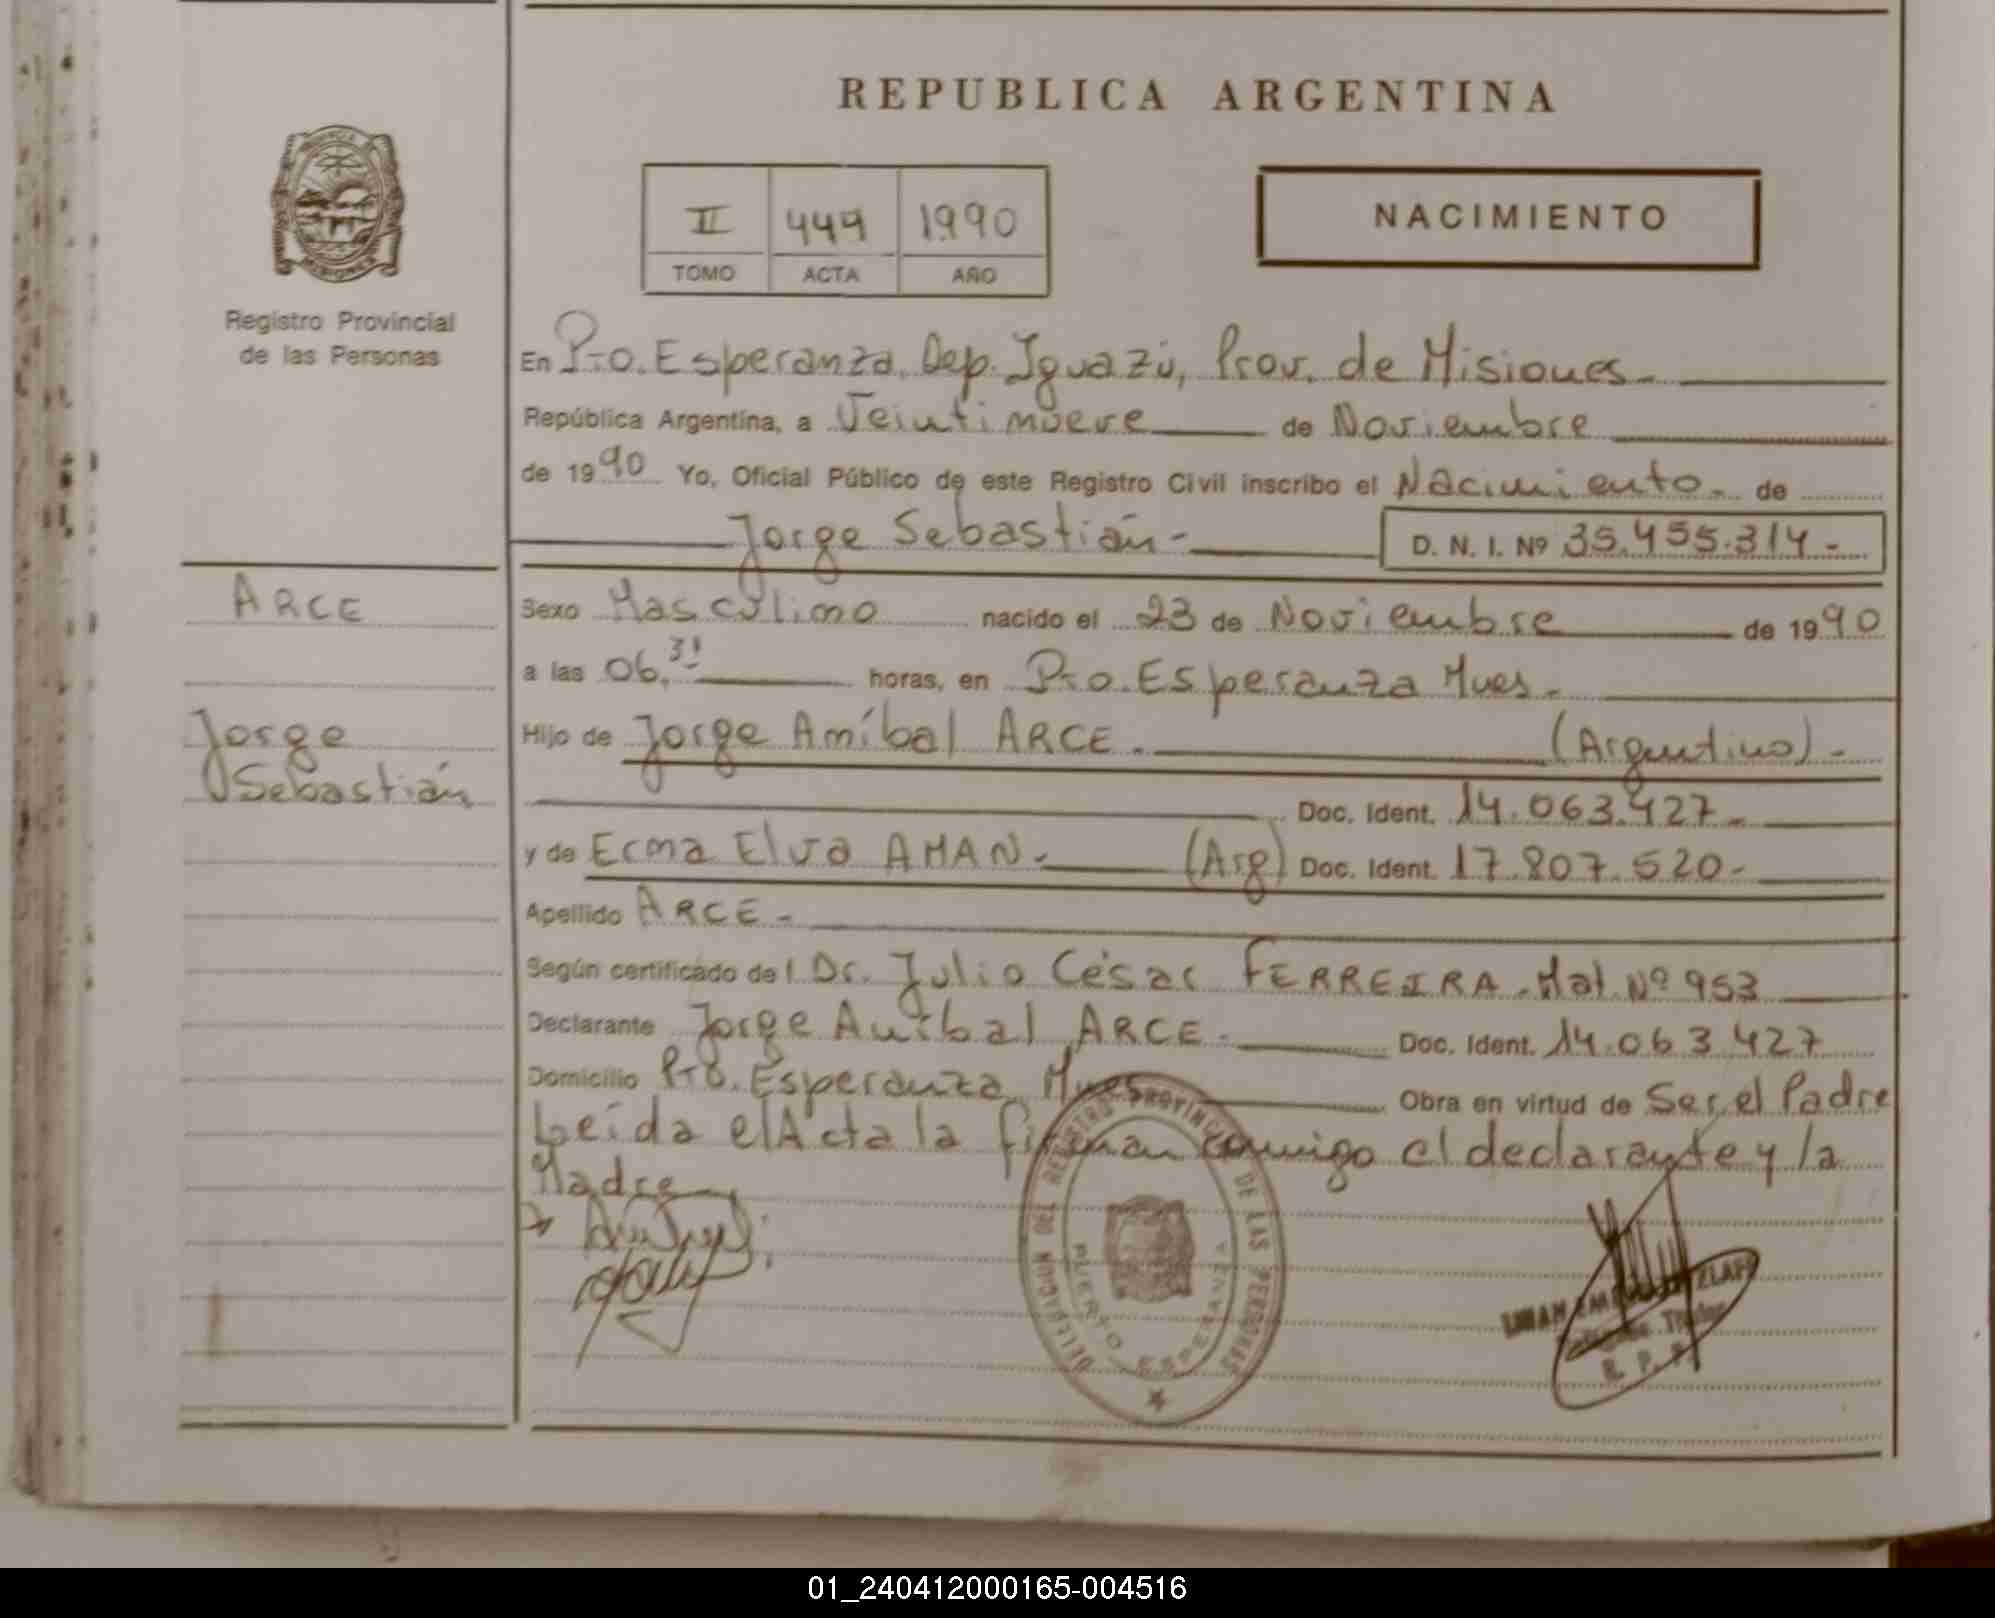 REPUBLICA ARGENTINA
PROVINCIA DE MISIONES
Registro Provincial
de las Personas
II 449 1990
TOMO ACTA AÑO
NACIMIENTO
En Pto. Esperanza, Dep. Iguazú, Prov. de Misiones.
República Argentina, a Veintinueve de Noviembre
de 1990 Yo, Oficial Público de este Registro Civil inscribo el Nacimiento. de
Jorge Sebastián - D. N. I. Nº 35.455.314 -
ARCE
Jorge
Sebastián
Sexo Masculino nacido el 23 de Noviembre de 1990
a las 06,31 horas, en Pto. Esperanza Mnes.
Hijo de Jorge Aníbal ARCE. (Argentino) -
Doc. Ident. 14.063.427 -
y de Erma Elva AMAN. (Arg) Doc. Ident. 17.807.520 -
Apellido ARCE -
Según certificado del Dr. Julio César FERREIRA. Mat. Nº 953
Declarante Jorge Aníbal ARCE. Doc. Ident. 14.063.427
Domicilio Pto. Esperanza Mnes Obra en virtud de Ser el Padre
Leída el Acta la firman conmigo el declarante y la
Madre
DELEGACION DEL REGISTRO PROVINCIAL DE LAS PERSONAS
PUERTO ESPERANZA
R. P. P.
01_240412000165-004516